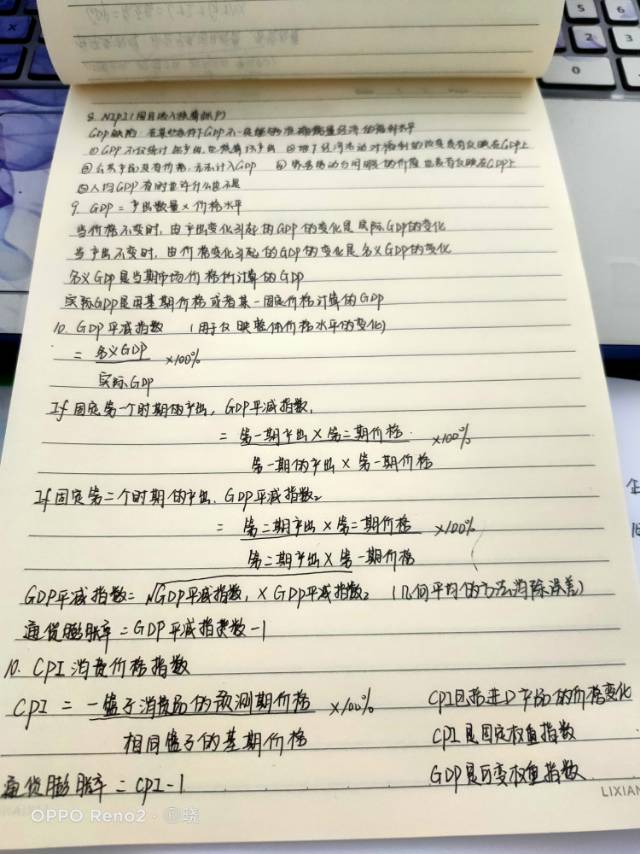 8. NIPI(国民收入核算账户)
GDP缺陷：在某些条件下GDP不一定能够准确衡量经济的福利水平
①GDP不仅统计 ②地下经济活动对福利的改变没有反映在GDP上
③公共产品没有价格，无法计入GDP ④家务活动与闲暇的价值也没有反映在GDP上
⑤人均GDP有时也
9. GDP = 产出数量 × 价格水平
当价格不变时，由产出变化引起的GDP的变化是实际GDP的变化
当产出不变时，由价格变化引起的GDP的变化是名义GDP的变化
名义GDP是当期市场价格所计算的GDP
实际GDP是用基期价格或者某一固定价格计算的GDP
10. GDP平减指数 (用于反映整体价格水平的变化)
= 名义GDP ×100%
实际GDP
If 固定第一个时期的产出，GDP平减指数₁
= 第一期产出 × 第二期价格 ×100%
第一期的产出 × 第一期价格
If 固定第二个时期的产出，GDP平减指数₂
= 第二期产出 × 第二期价格 ×100%
第二期产出 × 第一期价格
GDP平减指数 = √GDP平减指数₁ × GDP平减指数₂ (几何平均的方法消除误差)
通货膨胀率 = GDP平减指数 -1
10. CPI 消费价格指数
CPI = 一篮子消费品的预测期价格 ×100% CPI包括进口产品的价格变化
相同篮子的基期价格 CPI是固定权重指数
通货膨胀率 = CPI -1 GDP是可变权重指数
LIXIAN
OPPO Reno2 @晓